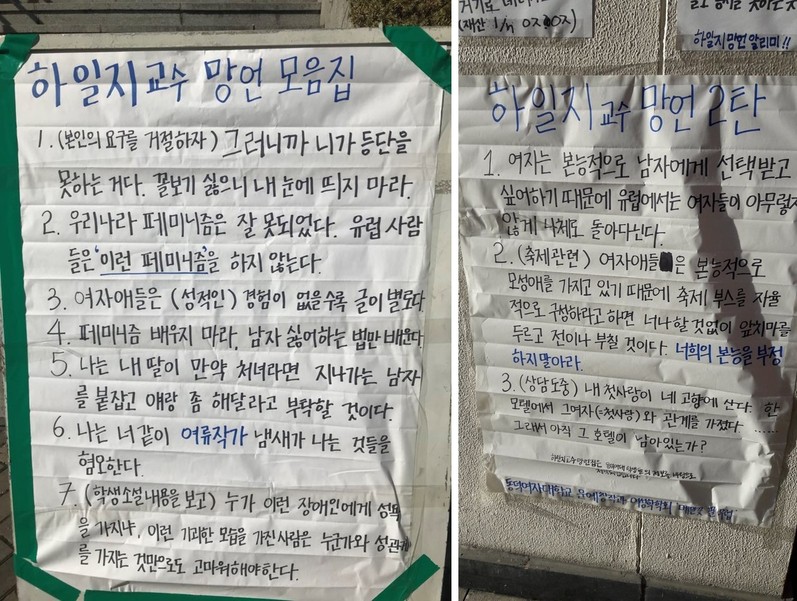 하일지교수 망언 모음집
1. (본인의 요구를 거절하자) 그러니까 니가 등단을
못하는 거다. 꼴보기 싫으니 내 눈에 띄지 마라.
2. 우리나라 페미니즘은 잘 못되었다. 유럽 사람
들은 '이런 페미니즘'을 하지 않는다.
3. 여자애들은 (성적인) 경험이 없을수록 글이 별로다
4. 페미니즘 배우지 마라, 남자 싫어하는 법만 배운다
5. 나는 내 딸이 만약 처녀라면 지나가는 남자
를 붙잡고 얘랑 좀 해달라고 부탁할 것이다.
6. 나는 너같이 여류작가 냄새가 나는 것들을
혐오한다.
7. (학생소설 내용을 보고) 누가 이런 장애인에게 성욕
을 가지냐, 이런 기괴한 모습을 가진사람은 누군가와 성관계
를 가지는 것만으로도 고마워해야한다.
(재산 1/n 0지0지)
하일지망언 알리미!!
하일지교수 망언 2탄
1. 여자는 본능적으로 남자에게 선택받고
싶어하기 때문에 유럽에서는 여자들이 아무렇지
않게 나체로 돌아다닌다.
2. (축제관련) 여자애들은 본능적으로
모성애를 가지고 있기 때문에 축제 부스를 자율
적으로 구성하라고 하면 너나 할 것 없이 앞치마를
두르고 전이나 부칠 것이다. 너희의 본능을 부정
하지말아라.
3. (상담도중) 내 첫사랑이 네 고향에 산다. 한
모텔에서 그여자(=첫사랑)와 관계를 가졌다 ......
그래서 아직 그 호텔이 남아있는가?
동덕여자대학교 문예창작과 여성학학회